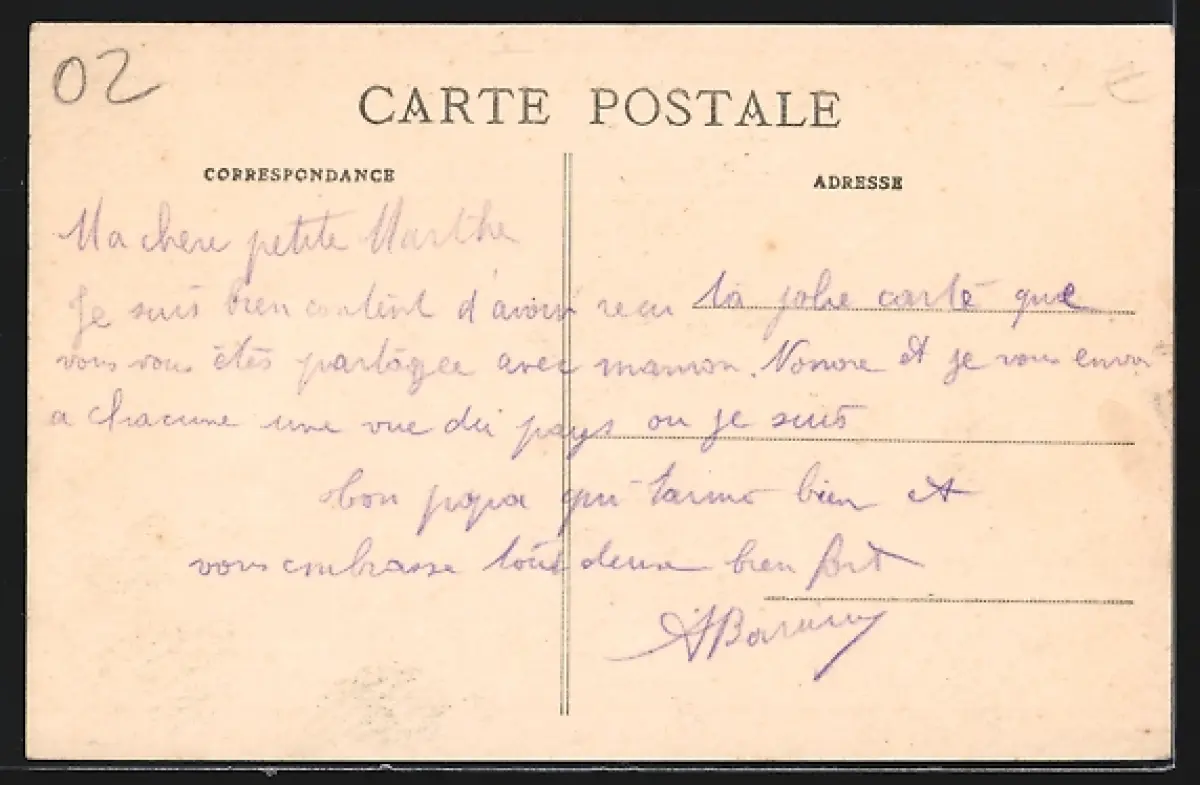 02
CARTE POSTALE
CORRESPONDANCE
ADRESSE
Ma chere petite Marthe
Je suis bien content d'avoir recu ta jolie carte que
vous vous êtes partagée avec maman. Nonore et je vous envoi
a chacune une vue du pays ou je suis
bon papa qui taime bien et
vous embrasse tout deux bien fort